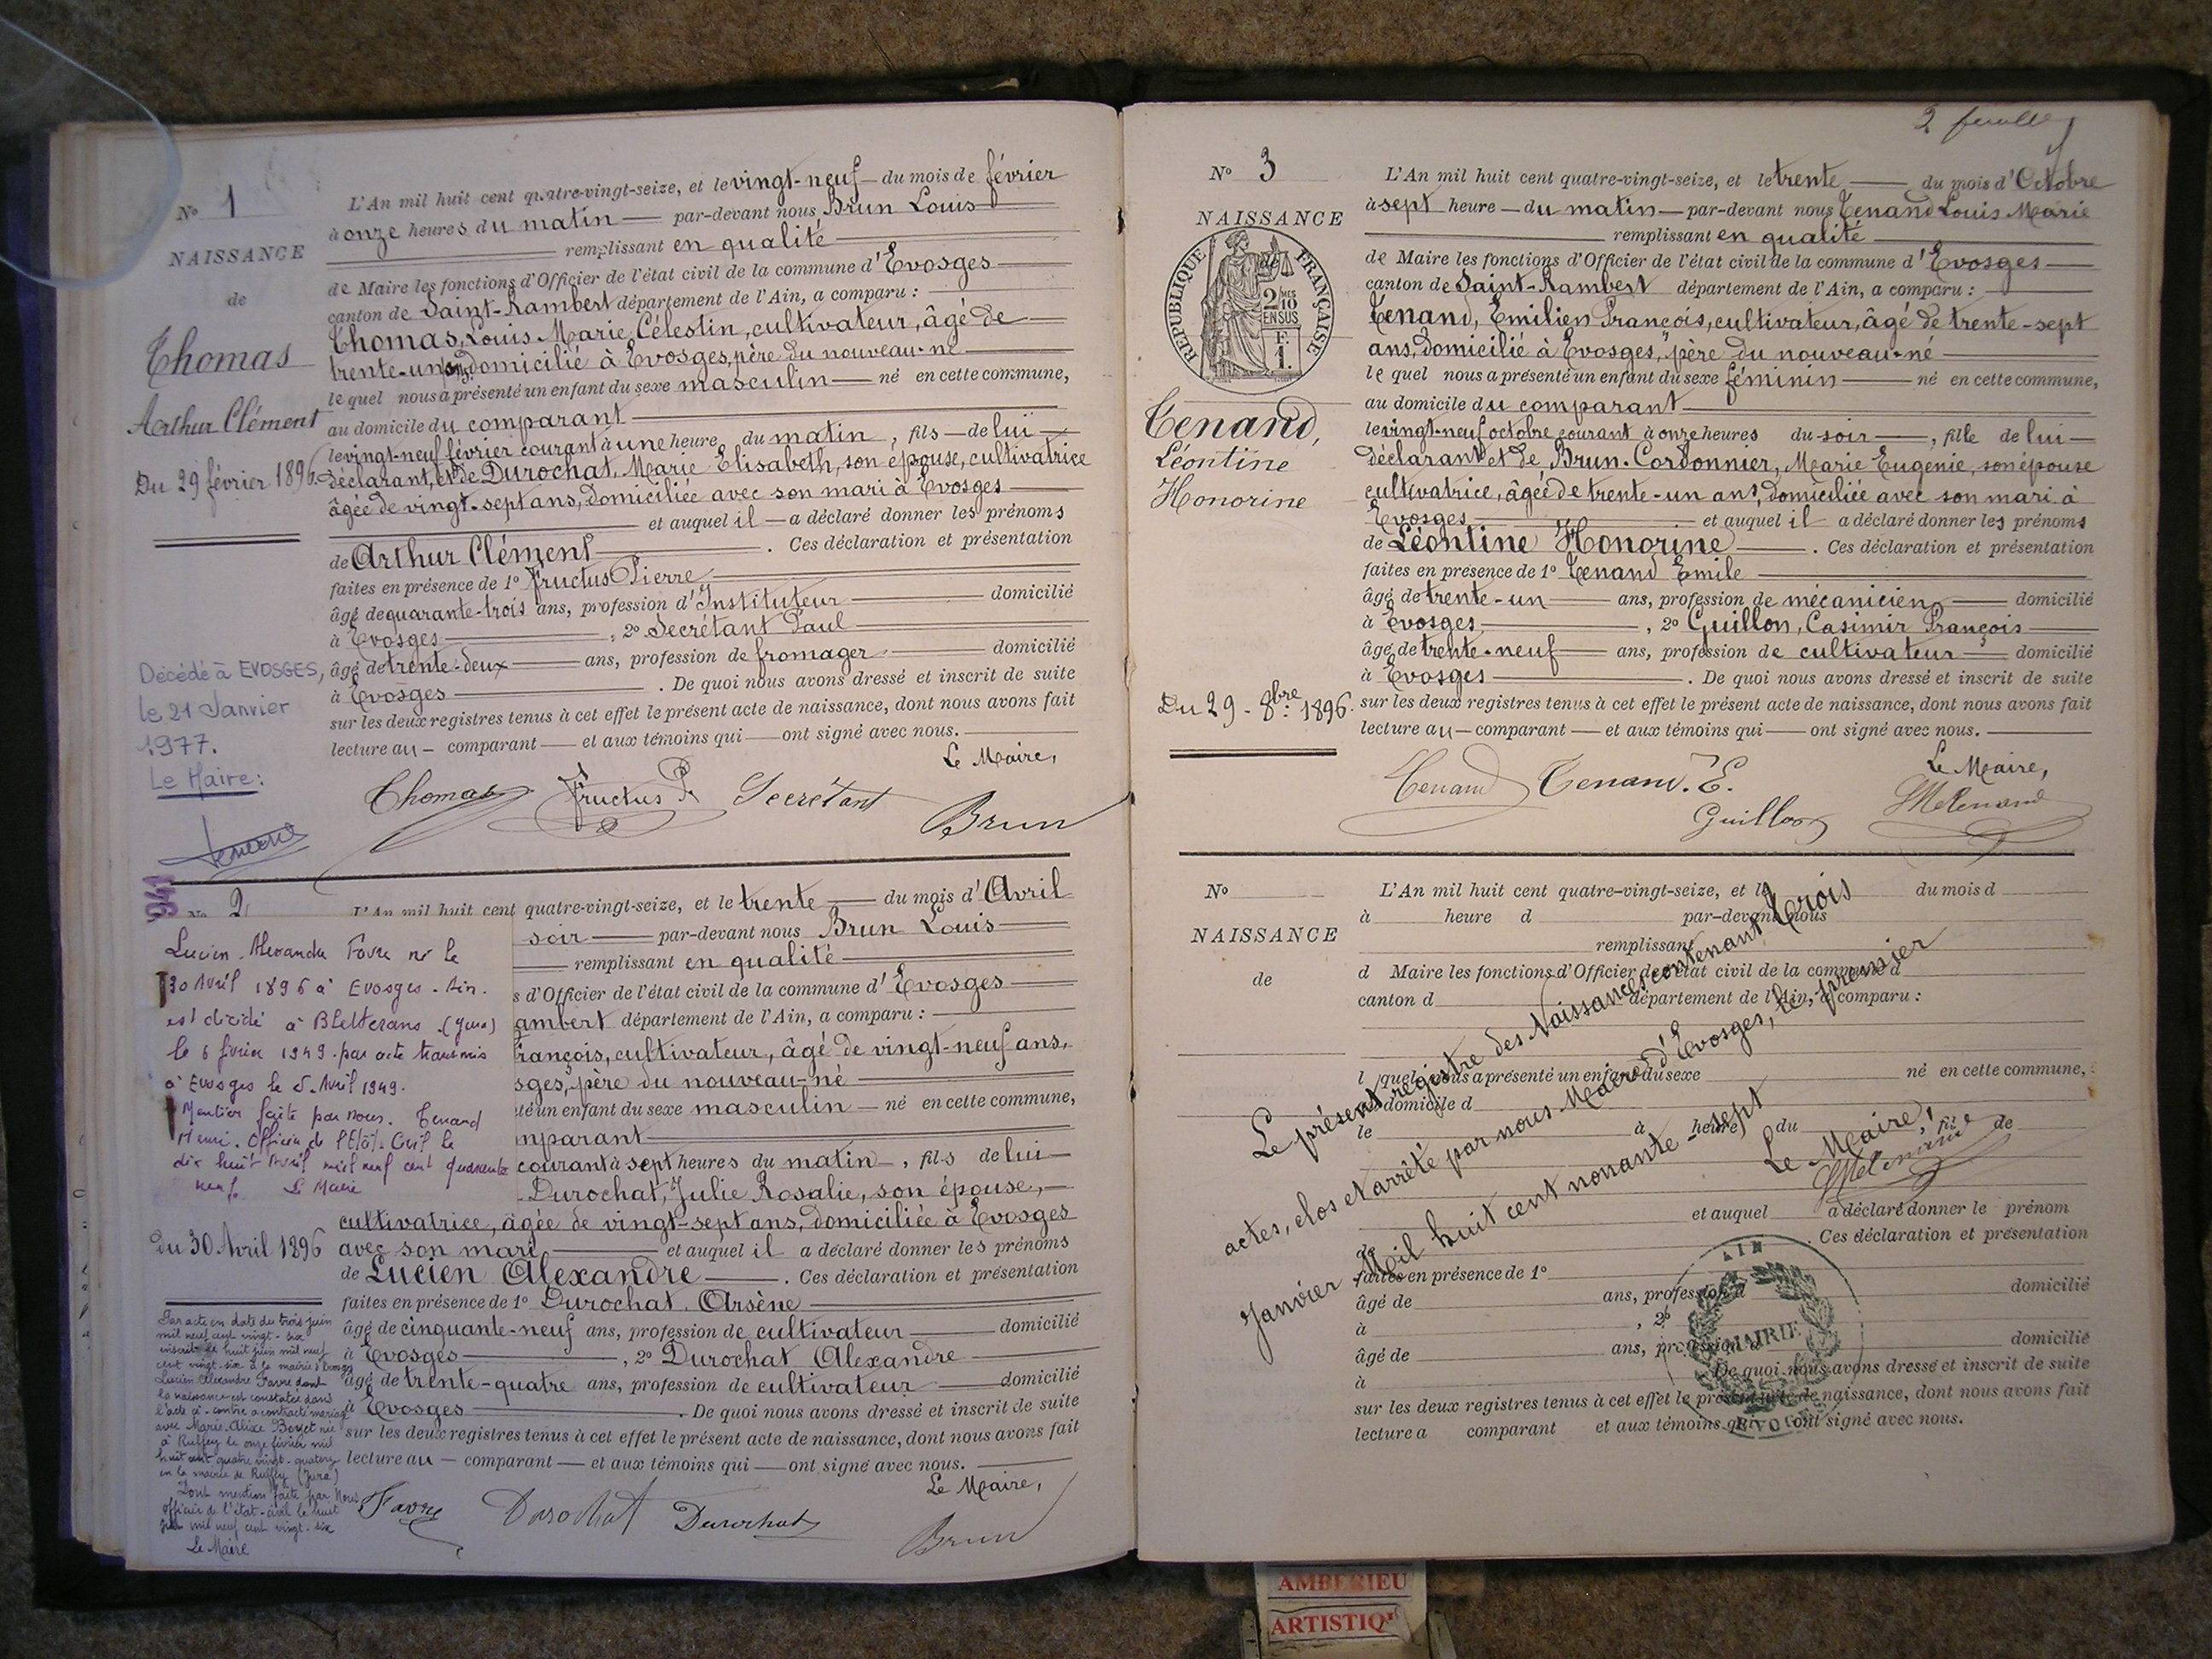 N° 1
NAISSANCE
de
Thomas
Arthur Clément
Du 29 février 1896.
Décédé à EVOSGES,
le 21 Janvier
1977.
Le Maire:
L'An mil huit cent quatre-vingt-seize, et le vingt-neuf du mois de février
à onze heures du matin par-devant nous Brun Louis
remplissant en qualité
de Maire les fonctions d'Officier de l'état civil de la commune d'Evosges
canton de Saint-Rambert département de l'Ain, a comparu :
Thomas, Louis Marie Célestin, cultivateur, âgé de
trente-un ans, domicilié à Evosges, père du nouveau-né
lequel nous a présenté un enfant du sexe masculin né en cette commune,
au domicile du comparant
le vingt-neuf février courant à une heure du matin, fils de lui
déclarant, et de Durochat, Marie Elisabeth, son épouse, cultivatrice
âgée de vingt-sept ans, domiciliée avec son mari à Evosges
et auquel il a déclaré donner les prénoms
de Arthur Clément . Ces déclaration et présentation
faites en présence de 1° Fructus Pierre
âgé de quarante-trois ans, profession d'Instituteur domicilié
à Evosges , 2° Secrétant Paul
âgé de trente-deux ans, profession de fromager domicilié
à Evosges . De quoi nous avons dressé et inscrit de suite
sur les deux registres tenus à cet effet le présent acte de naissance, dont nous avons fait
lecture au comparant et aux témoins qui ont signé avec nous.
Le Maire,
Thomas Fructus P. Secrétant Brun
N° 2
L'An mil huit cent quatre-vingt-seize, et le trente du mois d'Avril
soir par-devant nous Brun Louis
remplissant en qualité
s d'Officier de l'état civil de la commune d'Evosges
ambert département de l'Ain, a comparu :
rançois, cultivateur, âgé de vingt-neuf ans,
sges, père du nouveau-né
té un enfant du sexe masculin né en cette commune,
mparant
courant à sept heures du matin, fils de lui
Durochat, Julie Rosalie, son épouse,
cultivatrice, âgée de vingt-sept ans, domiciliée à Evosges
avec son mari et auquel il a déclaré donner les prénoms
de Lucien Alexandre . Ces déclaration et présentation
faites en présence de 1° Durochat Arsène
âgé de cinquante-neuf ans, profession de cultivateur domicilié
à Evosges , 2° Durochat Alexandre
âgé de trente-quatre ans, profession de cultivateur domicilié
à Evosges . De quoi nous avons dressé et inscrit de suite
sur les deux registres tenus à cet effet le présent acte de naissance, dont nous avons fait
lecture au comparant et aux témoins qui ont signé avec nous.
Le Maire,
Favre Durochat Durochat Brun
Lucien Alexandre Favre né le
30 Avril 1896 à Evosges - Ain.
est décédé à Bletterans (Jura)
le 6 février 1949. par acte transmis
à Evosges le 5 Avril 1949.
Mention faite par nous. Tenand
Henri. Officier de l'Etat Civil le
dix huit Avril mil neuf cent quarante
neuf. Le Maire
Du 30 Avril 1896
Par acte en date du trois juin
mil neuf cent vingt-six
inscrit le huit juin mil neuf
cent vingt-six à la mairie d'Evosges
Lucien Alexandre Favre dont
la naissance est constatée dans
l'acte ci-contre a contracté mariage
avec Marie Alice Berjet née
à Ruffey le onze février mil
huit cent quatre vingt-quatorze
en la mairie de Ruffey (Jura)
Dont mention faite par Nous
officier de l'état-civil le huit
juin mil neuf cent vingt-six
Le Maire
N° 3
NAISSANCE
RÉPUBLIQUE FRANÇAISE
2/10 MES
EN SUS
F.
1.
Tenand,
Léontine
Honorine
Du 29 - 8bre 1896.
L'An mil huit cent quatre-vingt-seize, et le trente du mois d'Octobre
à sept heure du matin par-devant nous Tenand Louis Marie
remplissant en qualité
de Maire les fonctions d'Officier de l'état civil de la commune d'Evosges
canton de Saint-Rambert département de l'Ain, a comparu :
Tenand, Emilien François, cultivateur, âgé de trente-sept
ans, domicilié à Evosges, père du nouveau-né
lequel nous a présenté un enfant du sexe féminin né en cette commune,
au domicile du comparant
le vingt-neuf octobre courant à onze heures du soir , fille de lui
déclarant et de Brun-Cordonnier, Marie Eugénie, son épouse
cultivatrice, âgée de trente-un ans, domiciliée avec son mari à
Evosges et auquel il a déclaré donner les prénoms
de Léontine Honorine . Ces déclaration et présentation
faites en présence de 1° Tenand Emile
âgé de trente-un ans, profession de mécanicien domicilié
à Evosges , 2° Guillon, Casimir François
âgé de trente-neuf ans, profession de cultivateur domicilié
à Evosges . De quoi nous avons dressé et inscrit de suite
sur les deux registres tenus à cet effet le présent acte de naissance, dont nous avons fait
lecture au comparant et aux témoins qui ont signé avec nous.
Le Maire,
Tenand Tenand. E.
Guillon
N°
NAISSANCE
de
L'An mil huit cent quatre-vingt-seize, et le du mois d
à heure d par-devant nous
remplissant
d Maire les fonctions d'Officier de l'état civil de la commune d
canton d département de l'Ain, a comparu :
l quel nous a présenté un enfant du sexe né en cette commune,
au domicile d
le à heure du , fil de
et auquel a déclaré donner le prénom
de . Ces déclaration et présentation
faites en présence de 1°
âgé de ans, profession d domicilié
à , 2°
âgé de ans, profession d domicilié
à . De quoi nous avons dressé et inscrit de suite
sur les deux registres tenus à cet effet le présent acte de naissance, dont nous avons fait
lecture a comparant et aux témoins qui ont signé avec nous.
Le présent registre des Naissances contenant trois
actes, clos et arrêté par nous Maire d'Evosges, le premier
Janvier Mil huit cent nonante-sept
Le Maire,
AIN
MAIRIE
AMBERIEU
ARTISTIQ